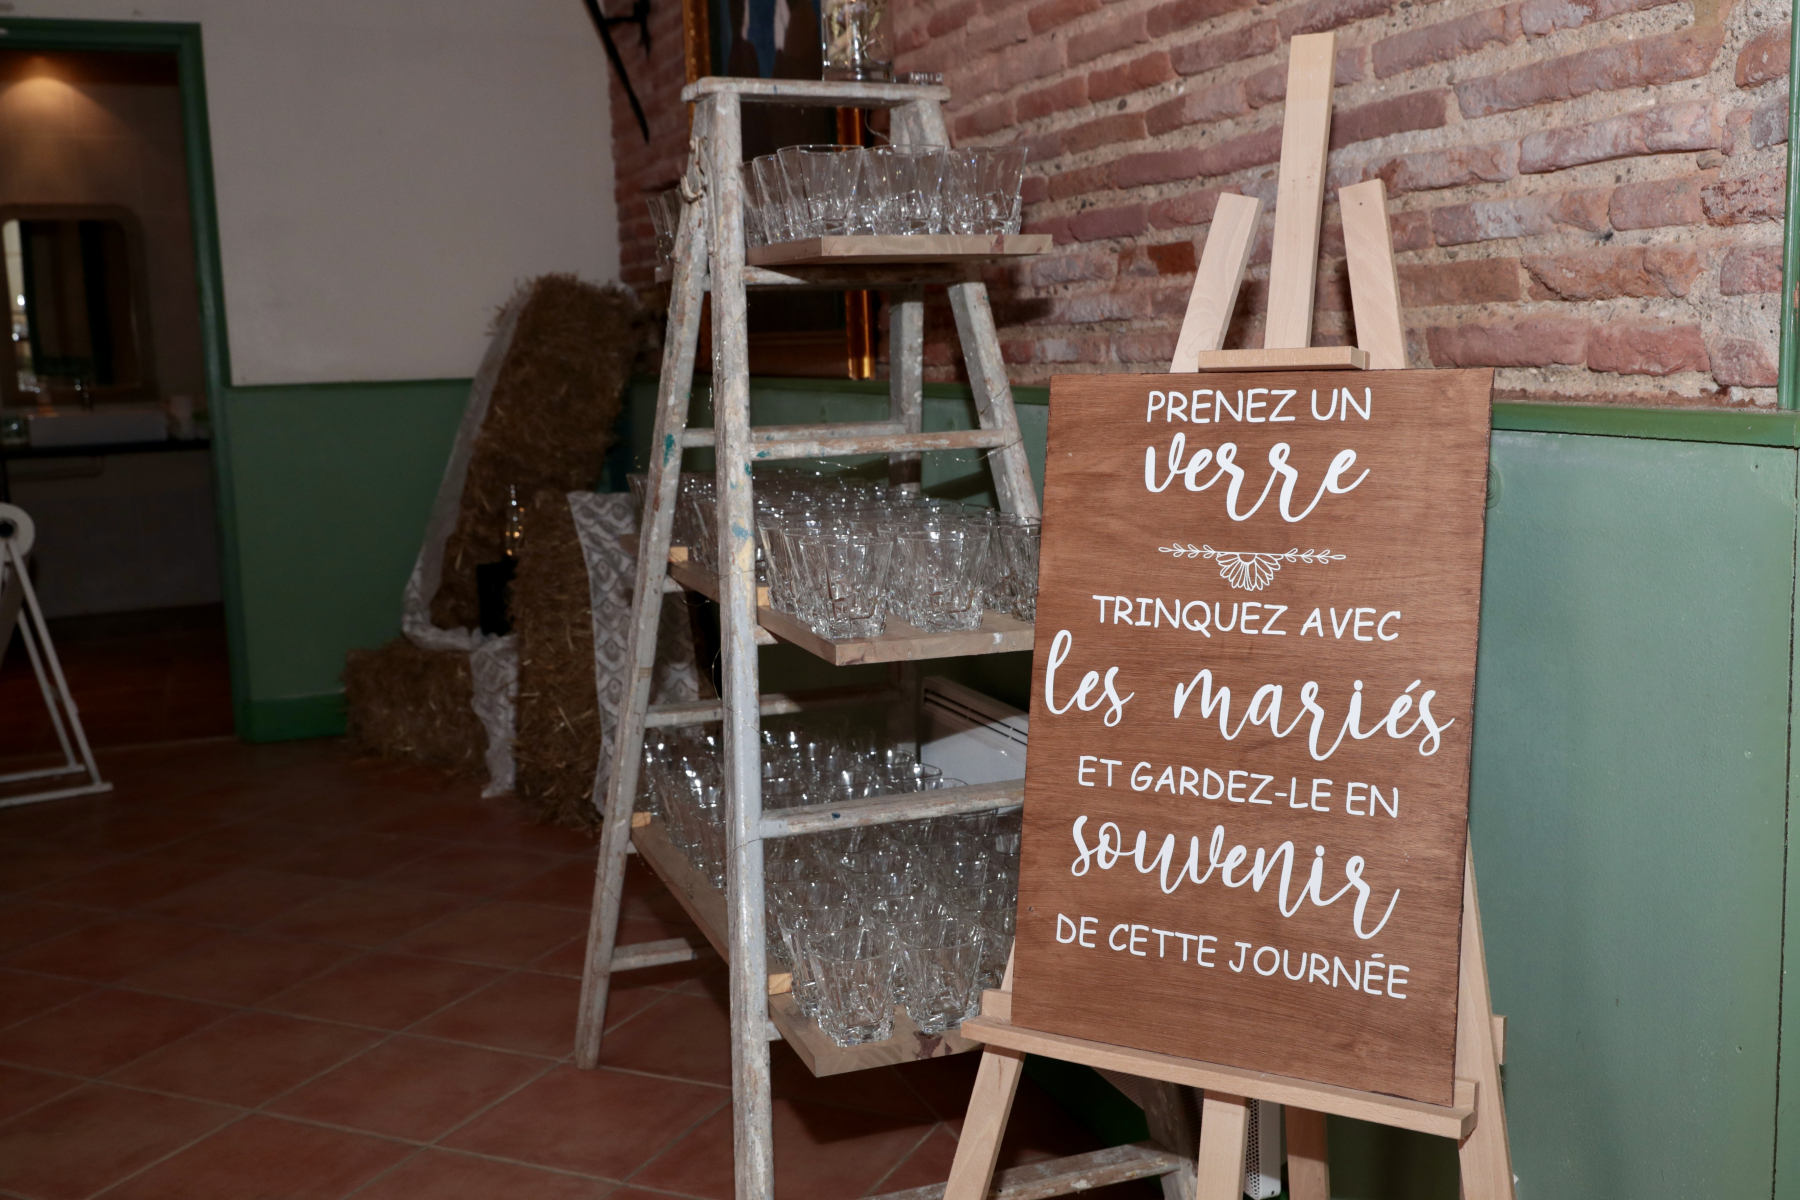 PRENEZ UN
verre
TRINQUEZ AVEC
les mariés
ET GARDEZ-LE EN
souvenir
DE CETTE JOURNÉE